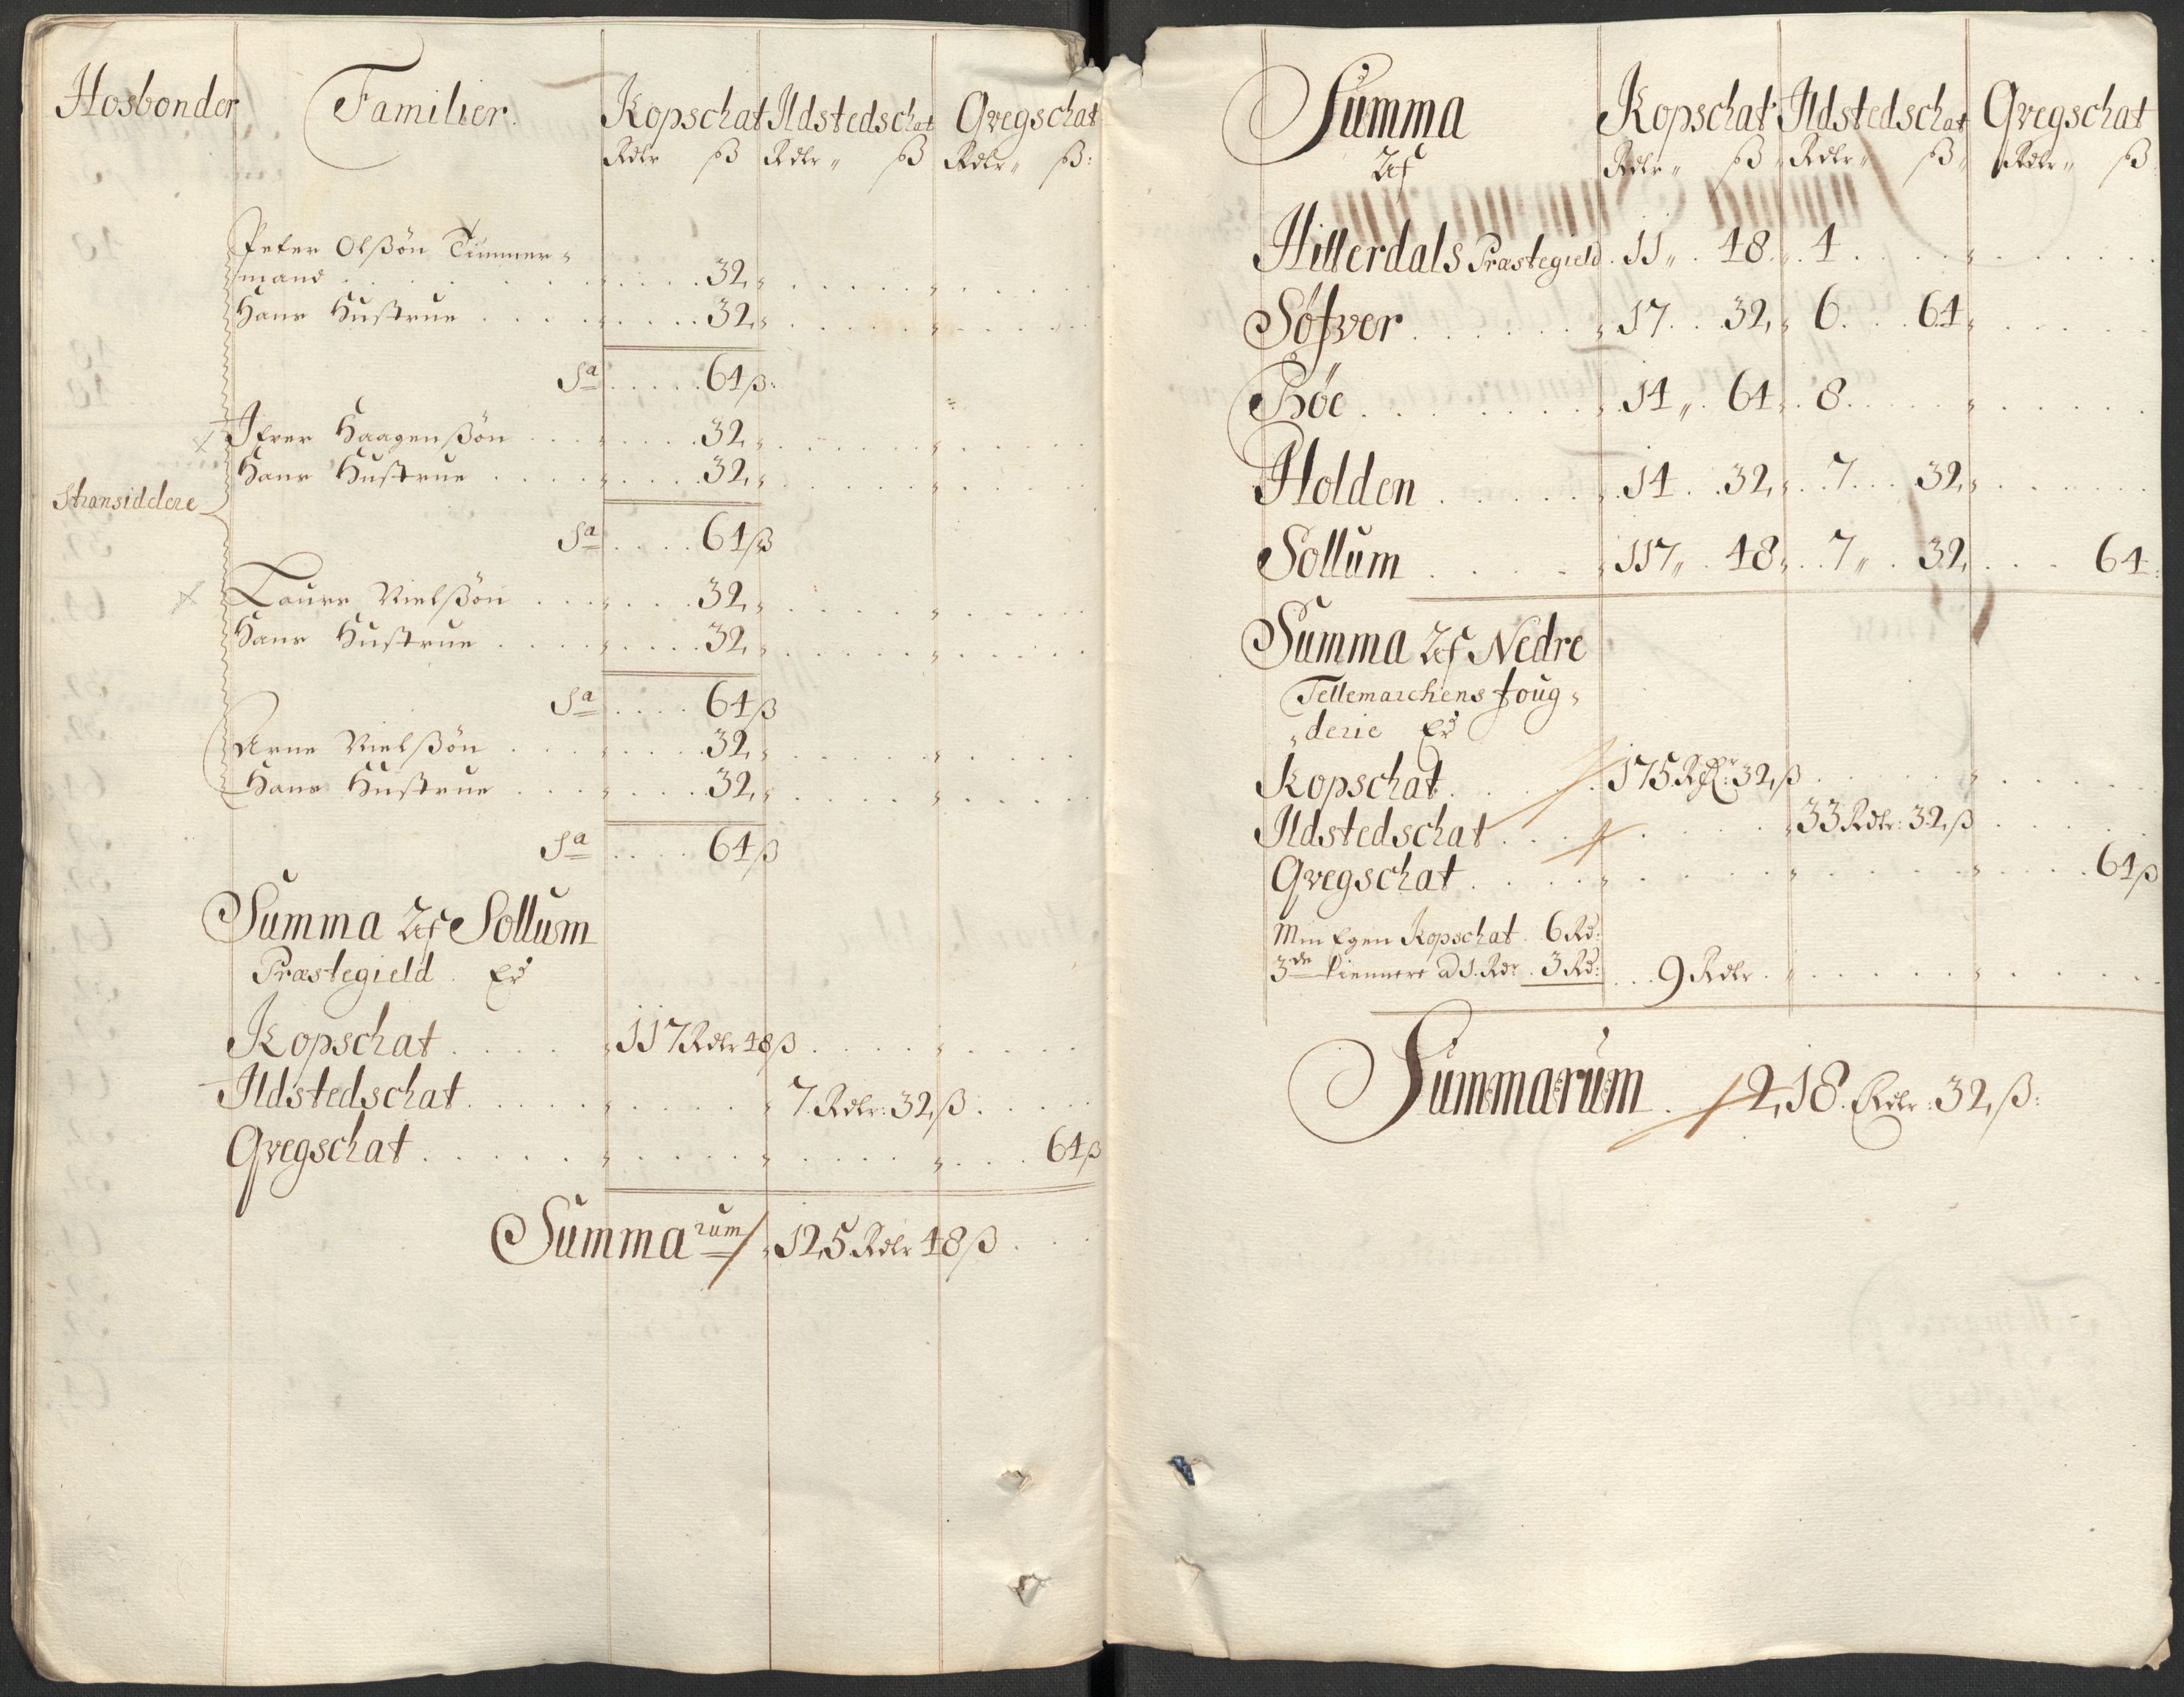 Hosbonder Familier. Kopschat Ildstedschat Qvegschat
Rdlr ß Rdlr„ ß Rdlr„ ß:
Peter Olßøn Timmer„
mand . . . 32„
Hans Hustrue . . . 32„
Sa . . . 64ß:
Ifver Haagenßøn . . . 32„
Hans Hustrue . . . 32„
Stransiddere
Sa . . . 64ß
Laurs Nielßøn . . . 32„
Hans Hustrue . . . 32„
Sa . . . 64ß
Arne Nielßøn . . . 32„
Hans Hustrue . . . 32„
Sa . . . 64ß
Summa Af Sollum
Præstegield. Er
Kopschat . . . 117 Rdlr 48ß
Ildstedschat . . . 7. Rdlr: 32ß
Qvegschat . . . 64ß
Summarum 125 Rdlr 48ß
Summa Kopschat Ildstedschat Qvegschat
Af Rdlr„ ß Rdlr„ ß„ Rdlr„ ß
Hitterdals Præstegield . 11„ 48. 4 . . .
Søfver . . . 17. 32„ 6. 64„
Bøe . . . 14„ 64„ 8. . .
Holden . . . 14. 32„ 7. 32„
Sollum . . . 117„ 48„ 7„ 32„ . . . 64:
Summa Af Nedre
Tellemarchens foug„
„derie Er
Kopschat . . . 175 Rdlr: 32ß
Ildstedschat . . . 33 Rdlr: 32ß
Qvegschat . . . 64ß
Min Egen Kopschat. 6 Rd:
3de tiennere a 1. Rdr. 3 Rd: . . . 9 Rdlr.
Summarum. 218. Rdlr: 32ß: